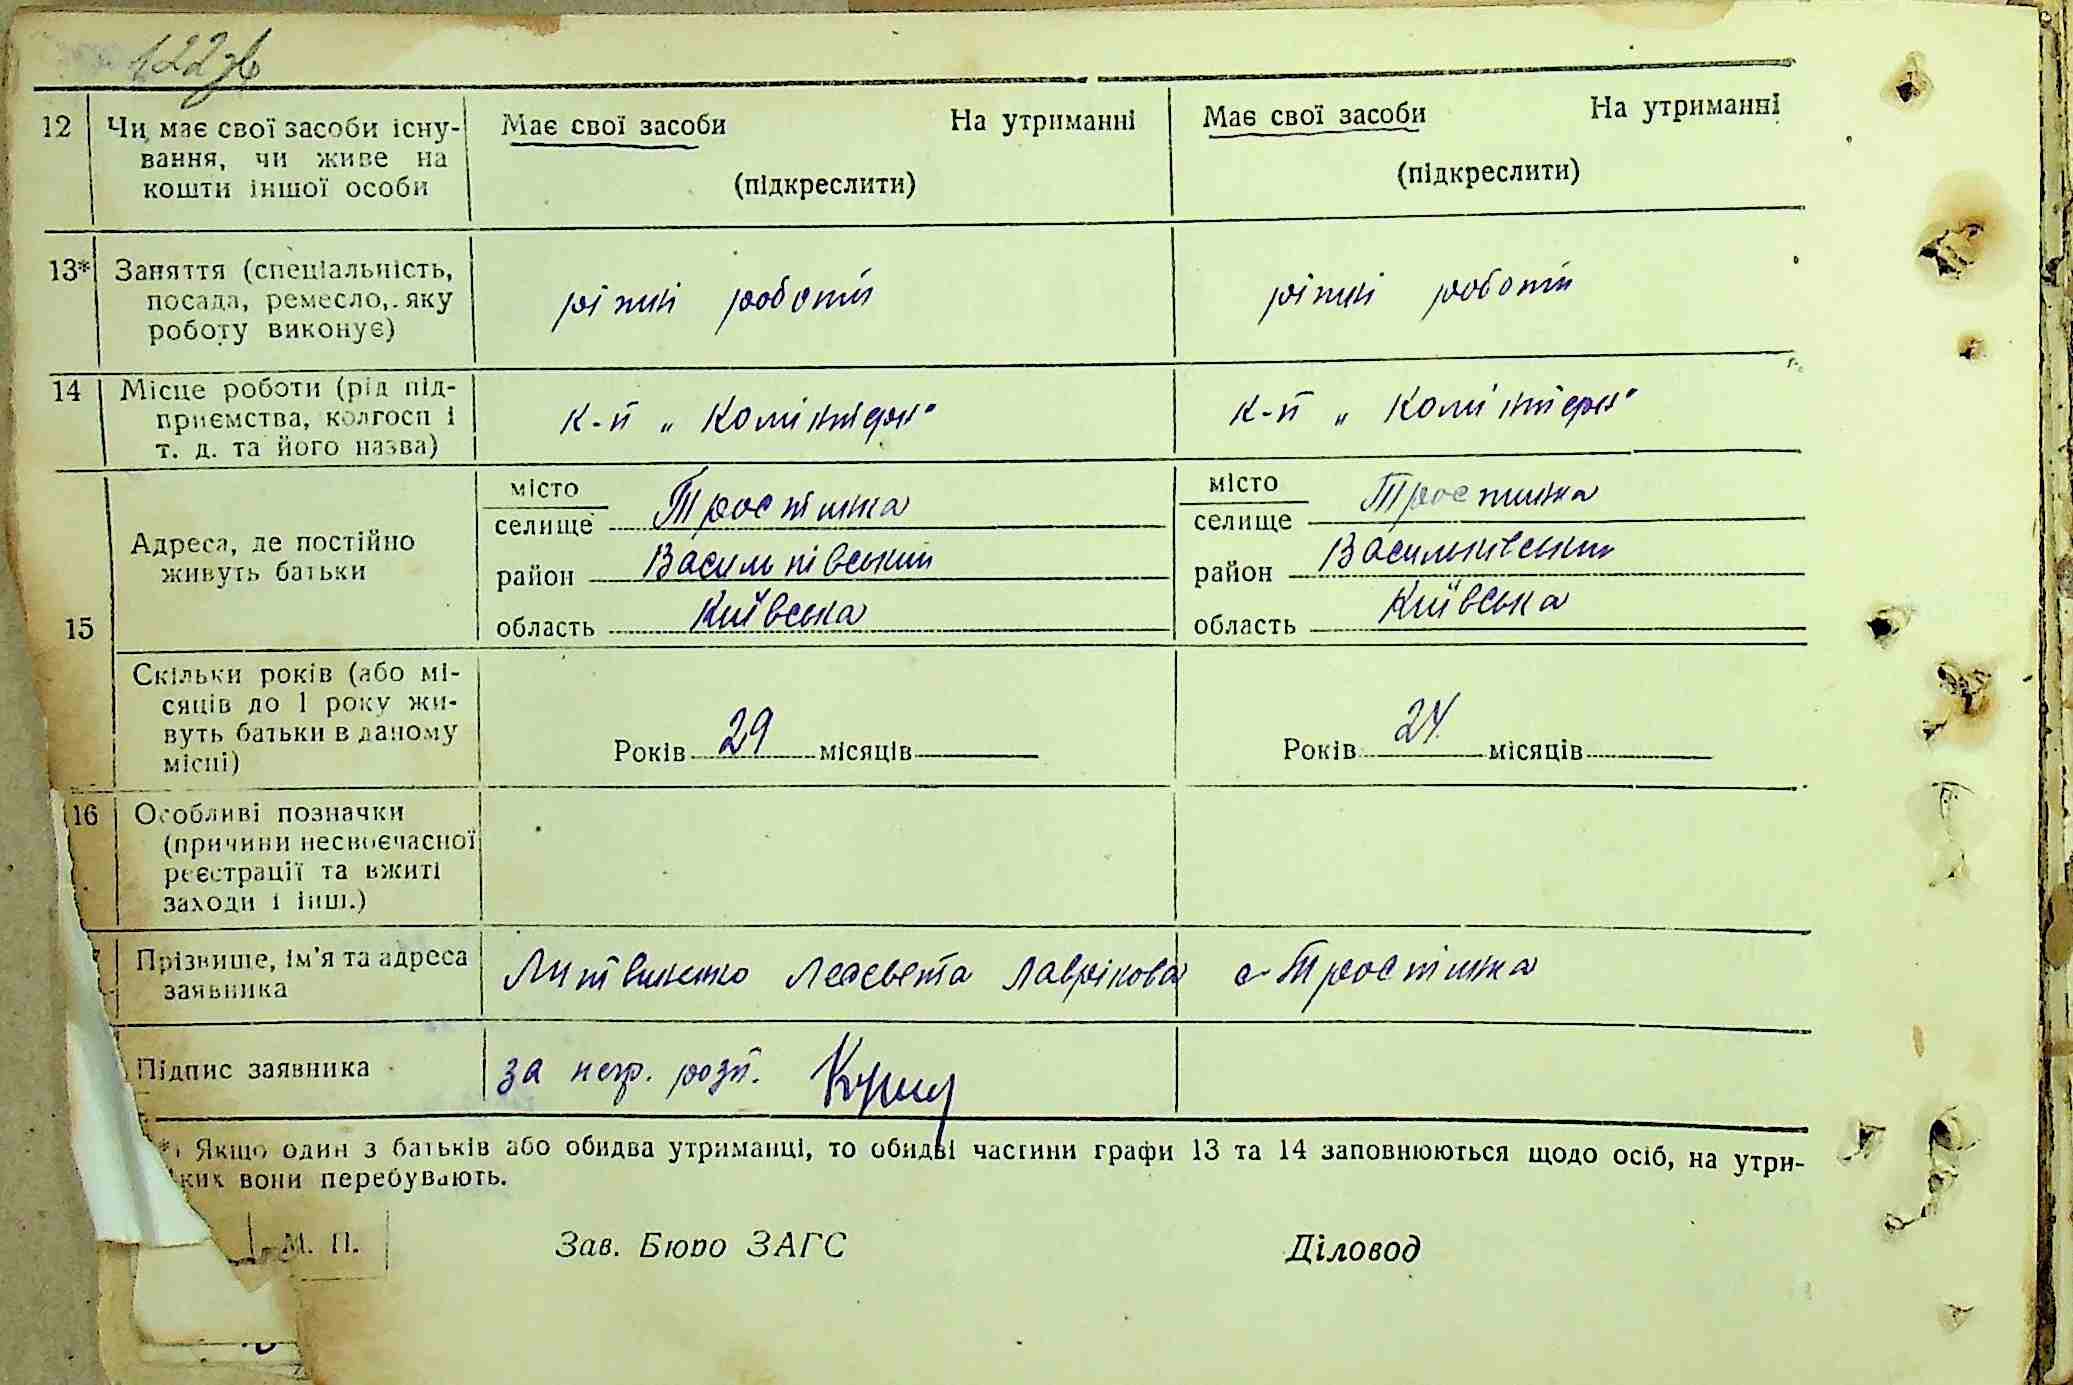 12 Чи має свої засоби існу- Має свої засоби На утриманні Має свої засоби На утриманні
вання, чи живе на
кошти іншої особи (підкреслити) (підкреслити)
13* Заняття (спеціальність,
посада, ремесло, яку різні роботи різні роботи
роботу виконує)
14 Місце роботи (рід під-
приємства, колгосп і к-п „Комінтерн" к-п „Комінтерн"
т. д. та його назва)
місто місто
селище Тростинка селище Тростинка
Адреса, де постійно
живуть батьки район Васильківський район Васильківський
15 область Київська область Київська
Скільки років (або мі-
сяців до 1 року жи-
вуть батьки в даному
місці) Років 29 місяців Років 24 місяців
16 Особливі позначки
(причини несвоєчасної
реєстрації та вжиті
заходи і інш.)
Прізвище, ім'я та адреса Литвиненко Лаврікова с Тростинка
заявника
Підпис заявника за негр. розп.
*) Якщо один з батьків або обидва утриманці, то обидві частини графи 13 та 14 заповнюються щодо осіб, на утри-
ких вони перебувають.
М. П. Зав. Бюро ЗАГС Діловод